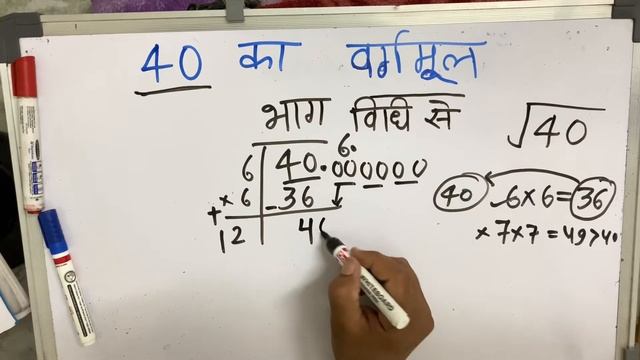 40 का वर्गमूल
भाग विधि से
√40
6.
6 | 40.000000
×6 | -36 ↓
+
12 | 40
40 6×6=36
×7×7=49>40